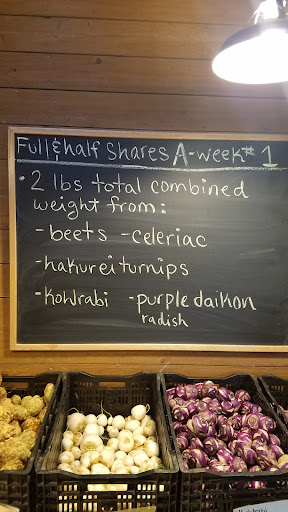 Full & half Shares A-week # 1
• 2 lbs total combined
weight from:
- beets - celeriac
- hakurei turnips
- Kohlrabi - purple daikon
radish